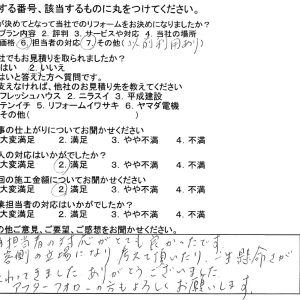 する番号、該当するものに丸をつけてください。
が決めてとなって当社でのリフォームをお決めになりましたか?
プラン内容 2. 評判 3. サービス対応 4. 当社の場所
価格 6. 担当者の対応 7. その他( 以前利用あり )
社でもお見積りを取られましたか?
はい 2. いいえ
はいと答えた方へ質問です。
支えなければ、他社のお見積り先を教えてください
フレッシュハウス 2. ニラスイ 3. 平成建設
テンイチ 5. リフォームイワサキ 6. ヤマダ電機
その他( )
事の仕上がりについてお聞かせください
大変満足 2. 満足 3. やや不満 4. 不満
人の対応はいかがでしたか?
大変満足 2. 満足 3. やや不満 4. 不満
回の施工金額についてお聞かせください
大変満足 2. 満足 3. やや不満 4. 不満
業担当者の対応はいかがでしたか?
大変満足 2. 満足 3. やや不満 4. 不満
の他ご意見、ご要望、ご感想をお聞かせください
担当者の対応がとても良かったです。
客側の立場になり考えて頂いたり、一生懸命さが
伝わってきました ありがとうございました
アフターフォローの方もよろしくお願いします。